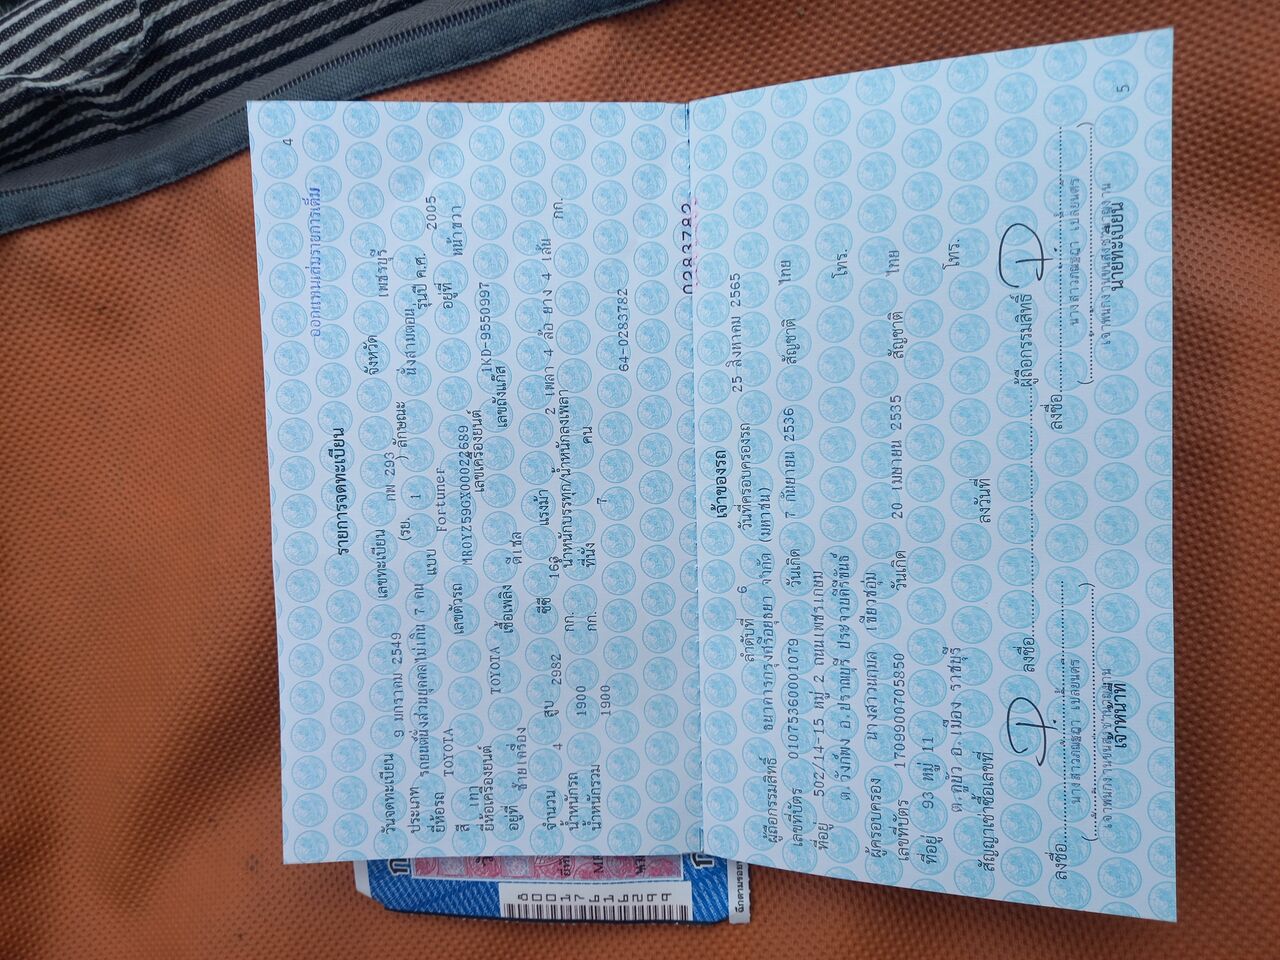 4
ออกแทนเล่มรายการเต็ม
รายการจดทะเบียน
วันจดทะเบียน 9 มกราคม 2549 เลขทะเบียน กพ 293 จังหวัด เพชรบุรี
ประเภท รถยนต์นั่งส่วนบุคคลไม่เกิน 7 คน (รย. 1 ) ลักษณะ นั่งสามตอน
ยี่ห้อรถ TOYOTA แบบ Fortuner รุ่นปี ค.ศ. 2005
สี เทา เลขตัวรถ MR0YZ59GX00022689 อยู่ที่ หน้าขวา
ยี่ห้อเครื่องยนต์ TOYOTA เลขเครื่องยนต์ 1KD-9550997
อยู่ที่ ซ้ายเครื่อง เชื้อเพลิง ดีเซล เลขถังแก๊ส
จำนวน 4 สูบ 2982 ซีซี 163 แรงม้า 2 เพลา 4 ล้อ ยาง 4 เส้น
น้ำหนักรถ 1900 กก. น้ำหนักบรรทุก/น้ำหนักลงเพลา กก.
น้ำหนักรวม 1900 กก. ที่นั่ง 7 คน
64-0283782
0283782
เจ้าของรถ
ลำดับที่ 6 วันที่ครอบครองรถ 25 สิงหาคม 2565
ผู้ถือกรรมสิทธิ์ ธนาคารกรุงศรีอยุธยา จำกัด (มหาชน)
เลขที่บัตร 0107536001079 วันเกิด 7 กันยายน 2536 สัญชาติ ไทย
ที่อยู่ 502/14-15 หมู่ 2 ถนนเพชรเกษม โทร.
ต.วังก์พง อ.ปราณบุรี ประจวบคีรีขันธ์
ผู้ครอบครอง นางสาวนฤมล เขียวชอุ่ม
เลขที่บัตร 1709900705850 วันเกิด 20 เมษายน 2535 สัญชาติ ไทย
ที่อยู่ 93 หมู่ 11 โทร.
ต.คูบัว อ.เมือง ราชบุรี
สัญญาเช่าซื้อเลขที่ ลงวันที่
ลงชื่อ ผู้ถือกรรมสิทธิ์
ลงชื่อ ลงชื่อ
เจ้าหน้าที่ นายทะเบียน
5
8001761 6299